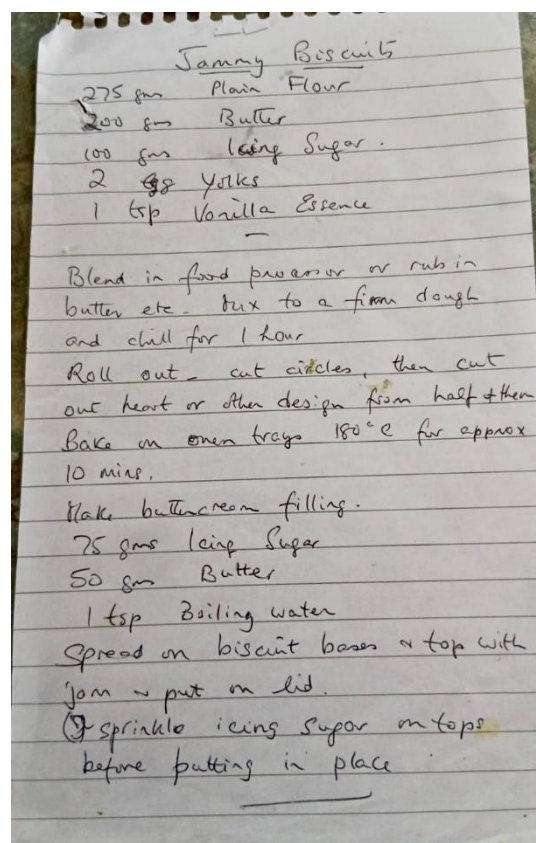 Jammy Biscuits
275 gms Plain Flour
200 gms Butter
100 gms Icing Sugar.
2 egg Yolks
1 tsp Vanilla Essence
Blend in food processor or rub in
butter etc. Mix to a firm dough
and chill for 1 hour
Roll out - cut circles, then cut
out heart or other design from half of them
Bake on oven trays 180°C for approx
10 mins.
Make buttercream filling.
75 gms Icing Sugar
50 gms Butter
1 tsp Boiling water
Spread on biscuit bases & top with
jam & put on lid.
(I sprinkle icing sugar on tops
before putting in place